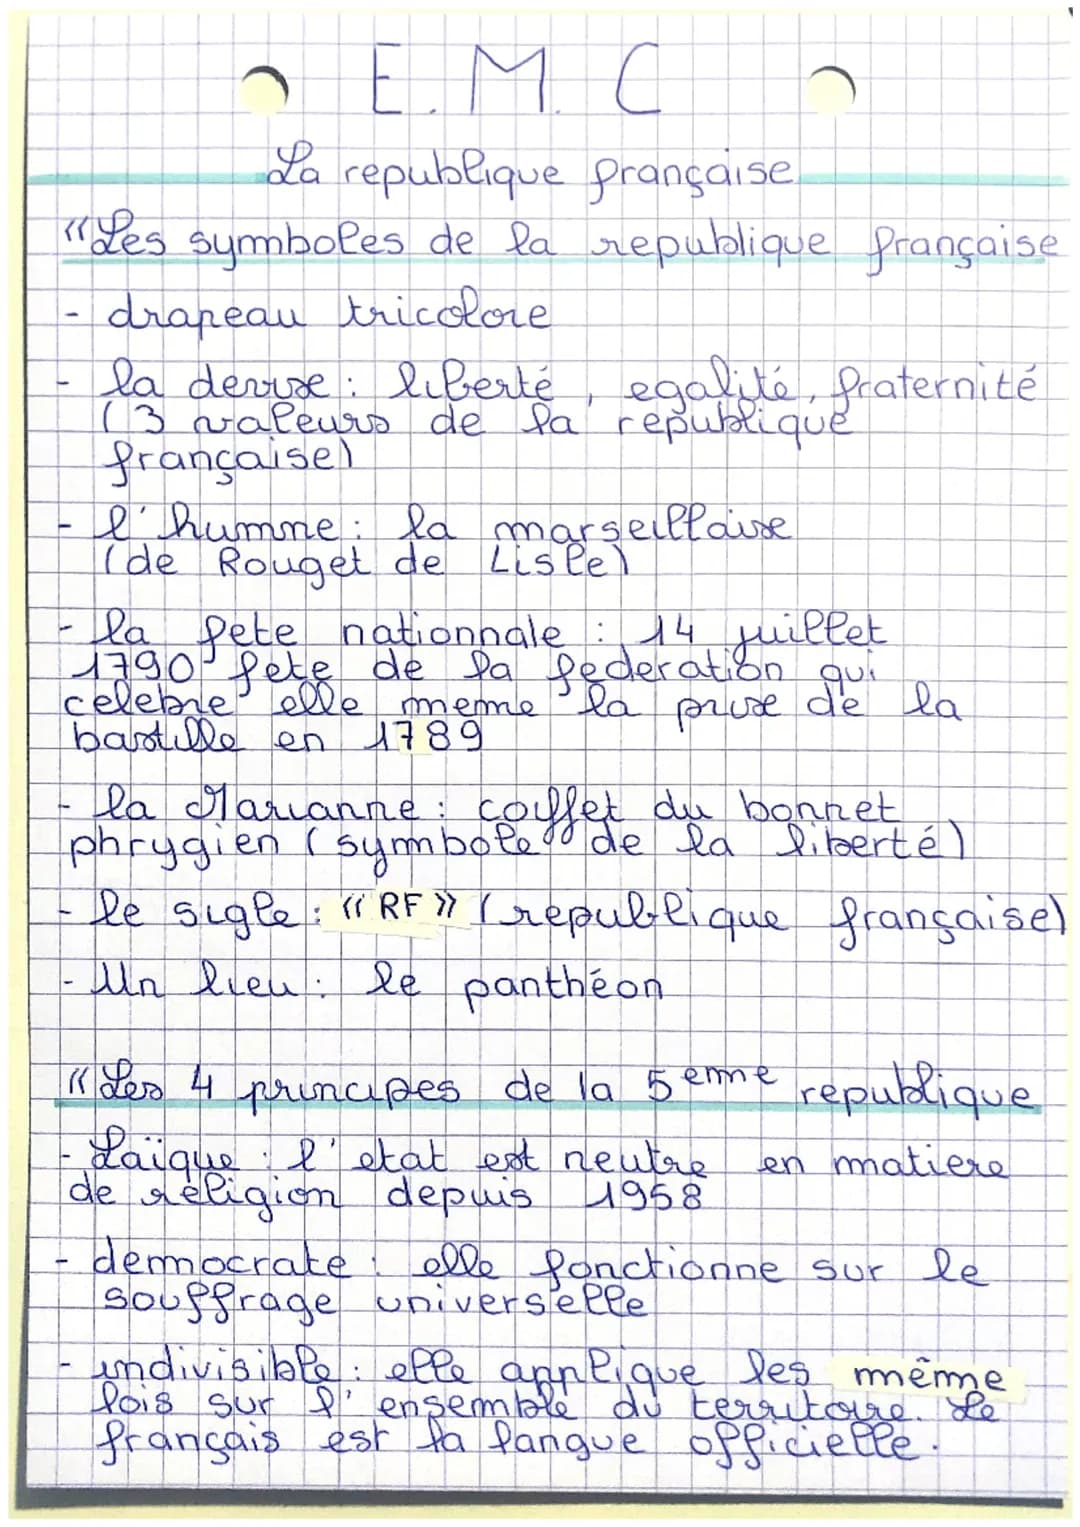 E. M. C
La republique française
"Les symboles de la republique française
- drapeau tricolore
- la devise : liberté, egalité, fraternité
(3 valeurs de la republique
française)
- l'humne : la marseillaise
(de Rouget de Lisle)
- la fete nationnale : 14 juillet
1790 fete de la federation qui
celebre elle meme la prise de la
bastille en 1789
- la Marianne : coiffet du bonnet
phrygien (symbole de la liberté)
- le sigle : « RF » (republique française)
- Un lieu : le panthéon
"Les 4 principes de la 5eme republique
- Laïque : l'etat est neutre en matiere
de religion depuis 1958
- democrate : elle fonctionne sur le
souffrage universelle
- indivisible : elle applique les même
lois sur l'ensemble du territoire. Le
français est la langue officielle.